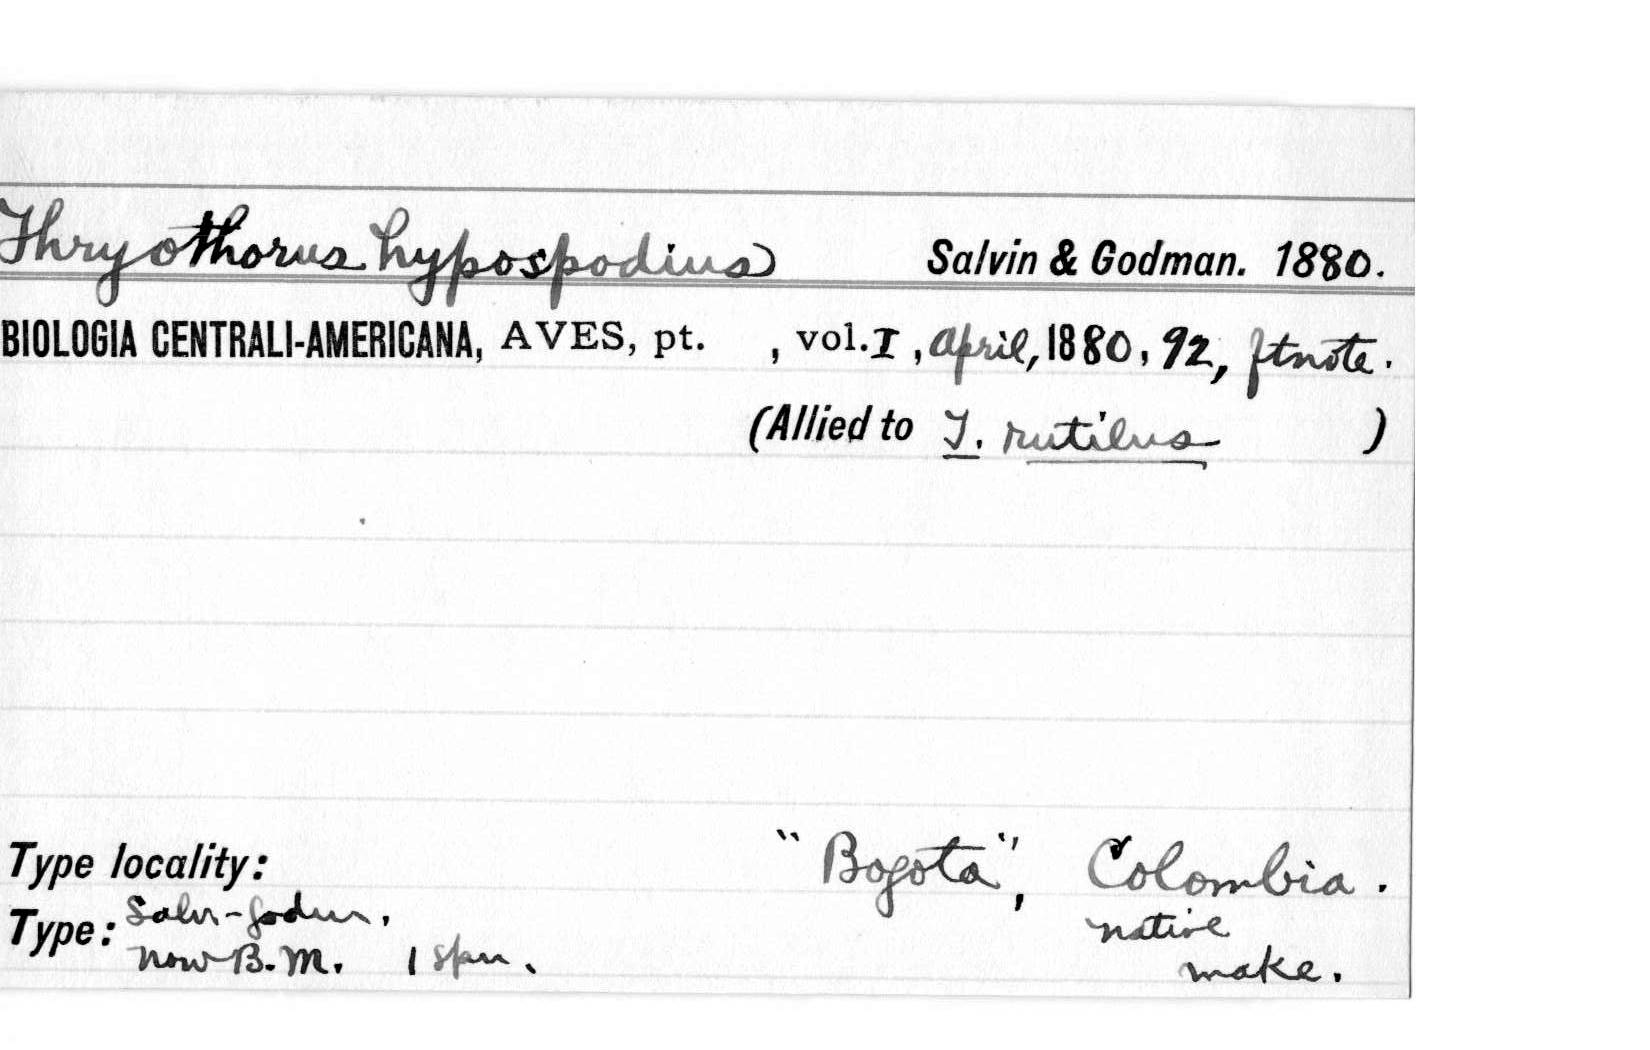 Thryothorus hypospodius Salvin & Godman. 1880.
BIOLOGIA CENTRALI-AMERICANA, AVES, pt. , vol. I, April, 1880, 92, ftnote.
(Allied to T. rutilus )
Type locality: "Bogota", Colombia.
Type: Salv-Godm. native
now B.M. 1 spm. make.